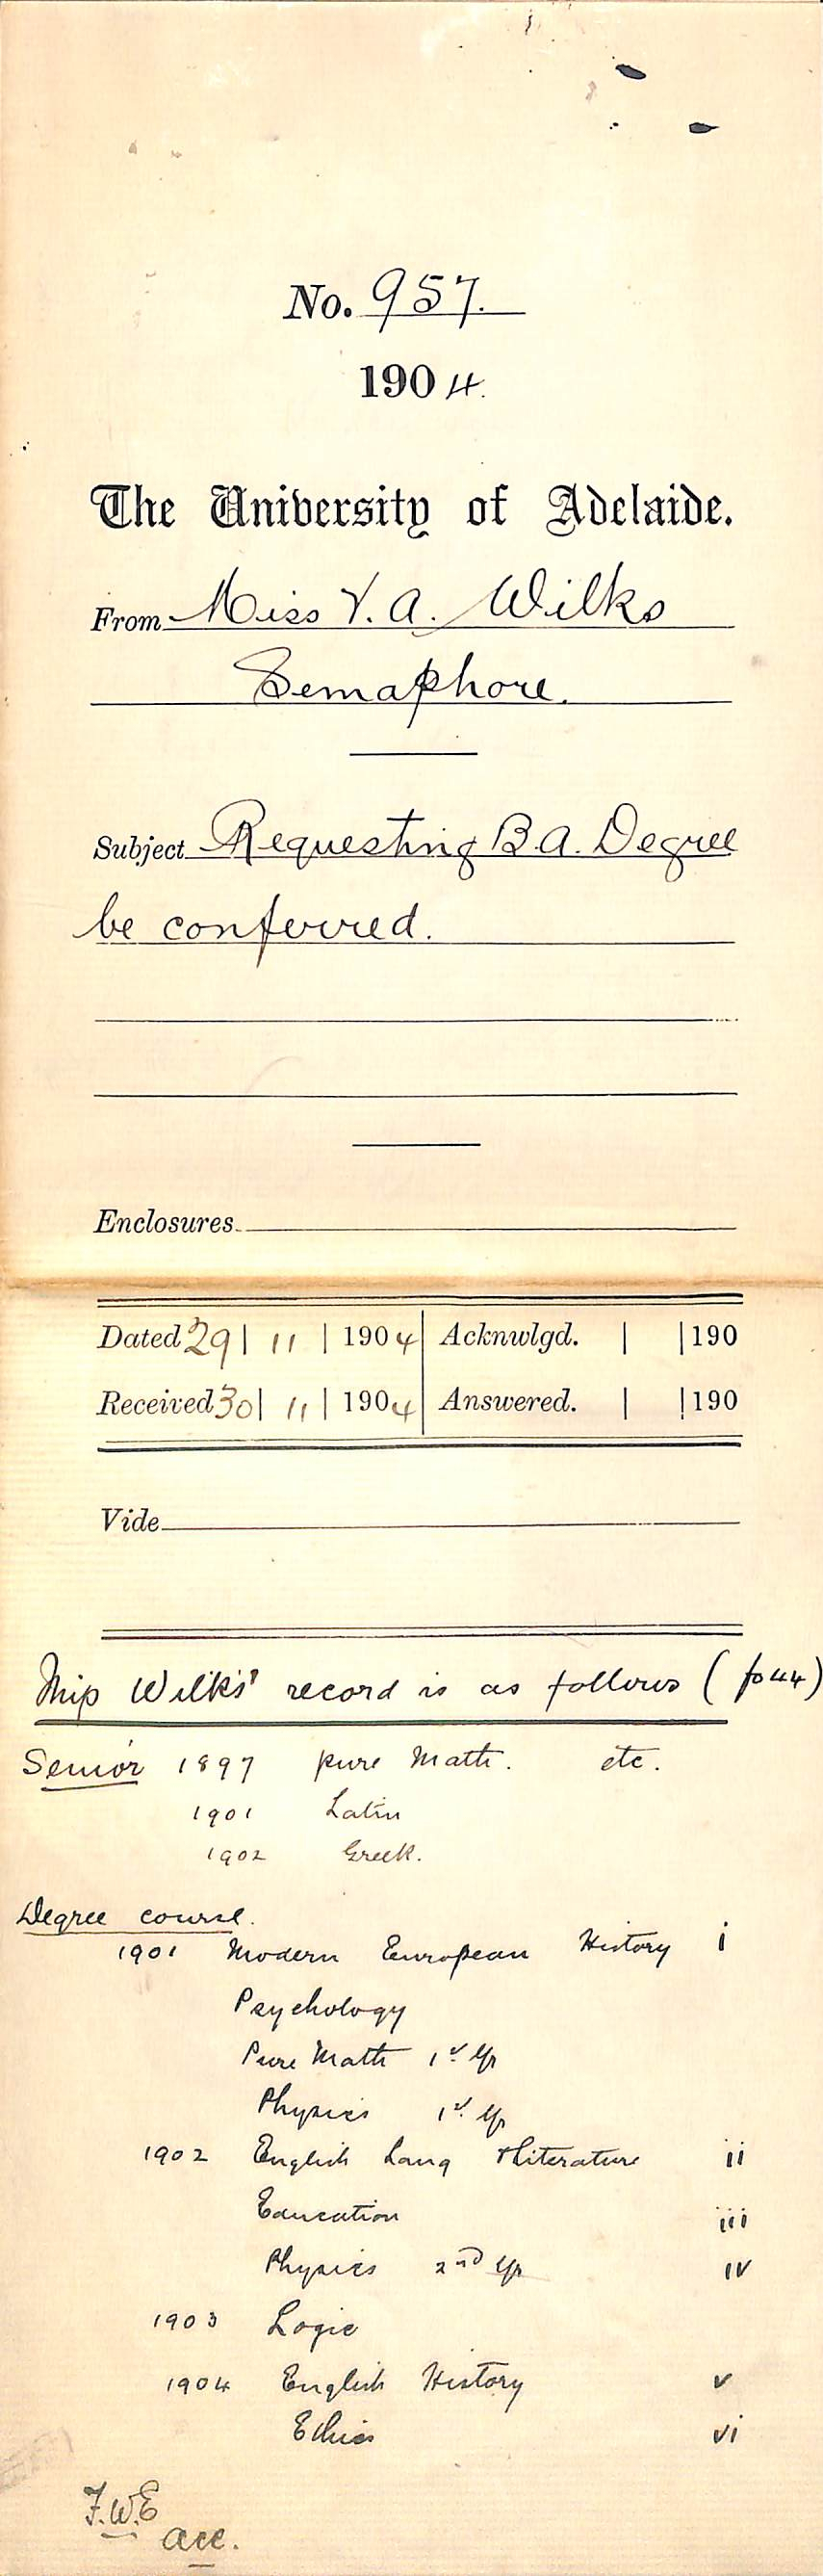 No. 957.
1904.
The University of Adelaide.
From Miss V. A. Wilks
Semaphore.
Subject Requesting B.A. Degree
be conferred.
Enclosures
Dated 29 | 11 | 1904 | Acknwlgd. | | 190
Received 30 | 11 | 1904 | Answered. | | 190
Vide
Miss Wilks' record is as follows (fo 44)
Senior 1897 pure Math. etc.
1901 Latin
1902 Greek.
Degree course.
1901 Modern European History i
Psychology
Pure Math 1st Yr
Physics 1st Yr
1902 English Lang & Literature ii
Education iii
Physics 2nd Yr iv
1903 Logic
1904 English History v
Ethics vi
F.W.E